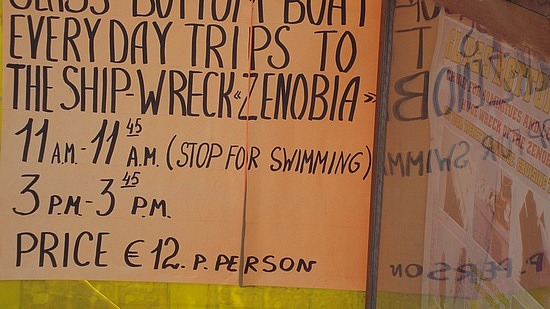 GLASS BOTTOM BOAT
EVERY DAY TRIPS TO
THE SHIP-WRECK «ZENOBIA»
11 A.M.-11 45 A.M. (STOP FOR SWIMMING)
3 P.M-3 45 P.M.
PRICE € 12. P. PERSON